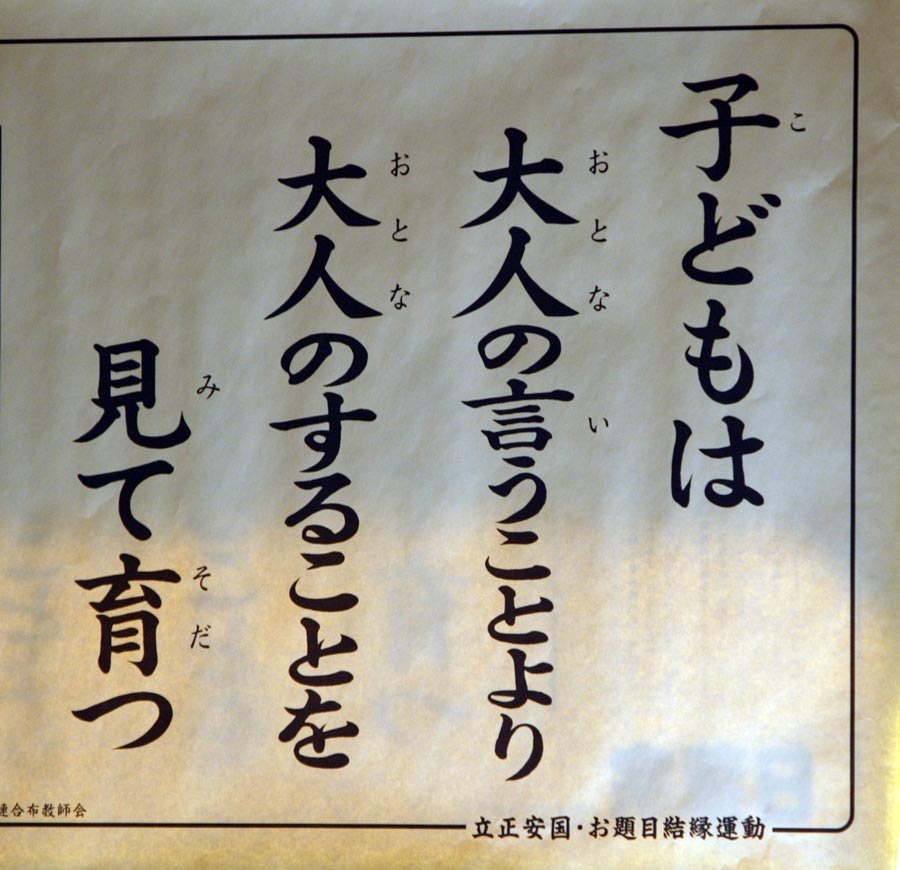 子どもは
大人の言うことより
大人のすることを
見て育つ
こ
おとな
い
おとな
み
そだ
立正安国・お題目結縁運動
連合布教師会